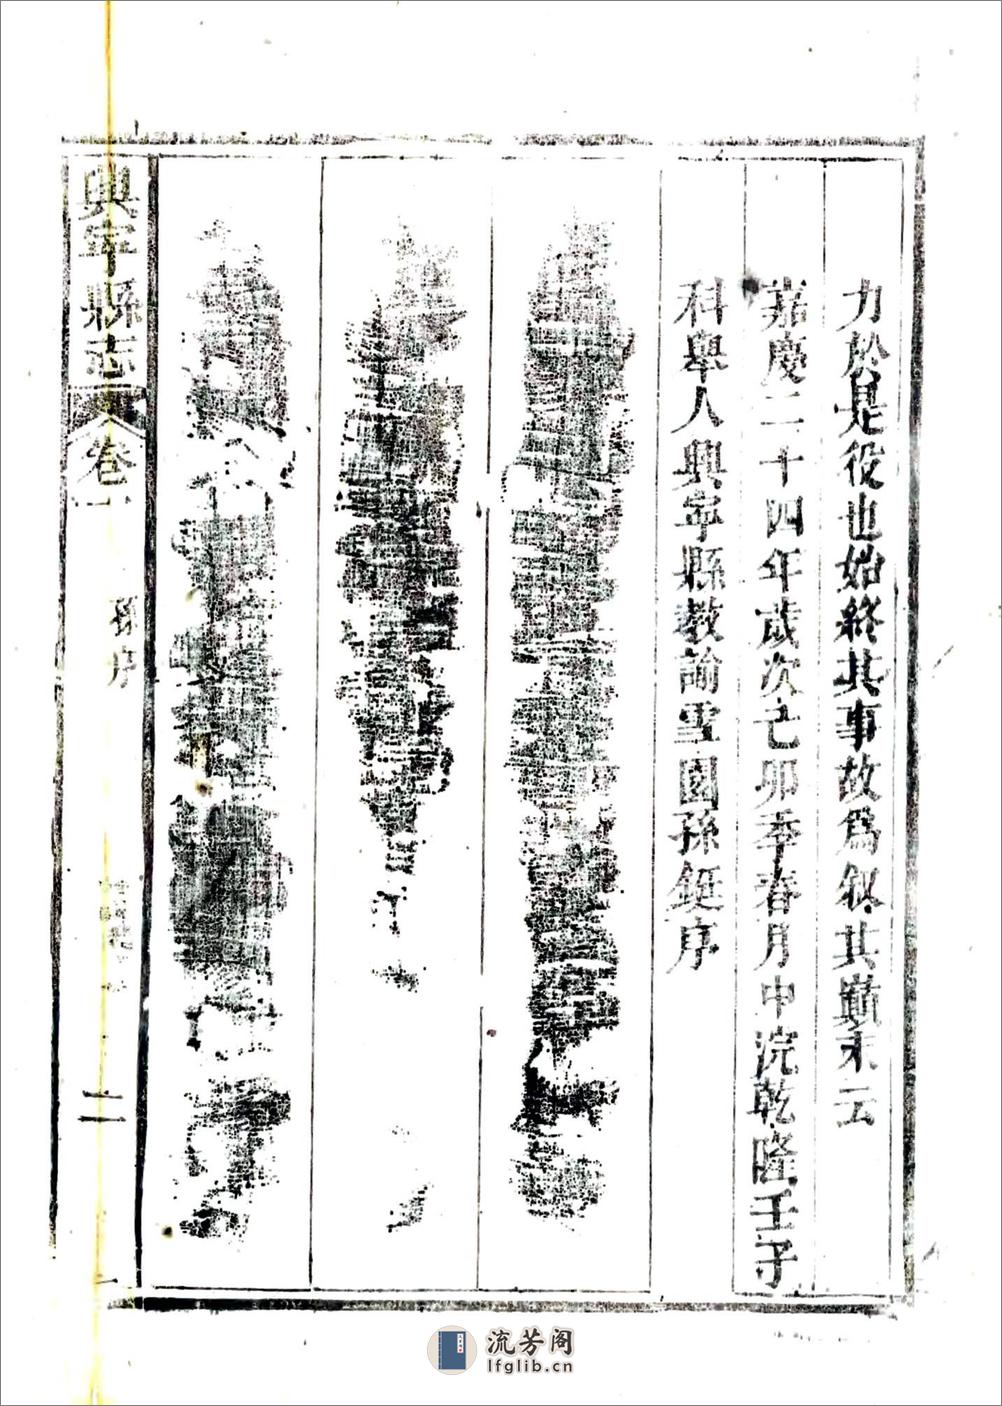 力於是役也始終其事故爲叙其巔末云
嘉慶二十四年歲次己卯季春月中浣乾隆壬子
科舉人興寧縣教諭雪園孫鋌序
興寧縣志
卷一
孫序
二
流芳阁
lfglib.cn